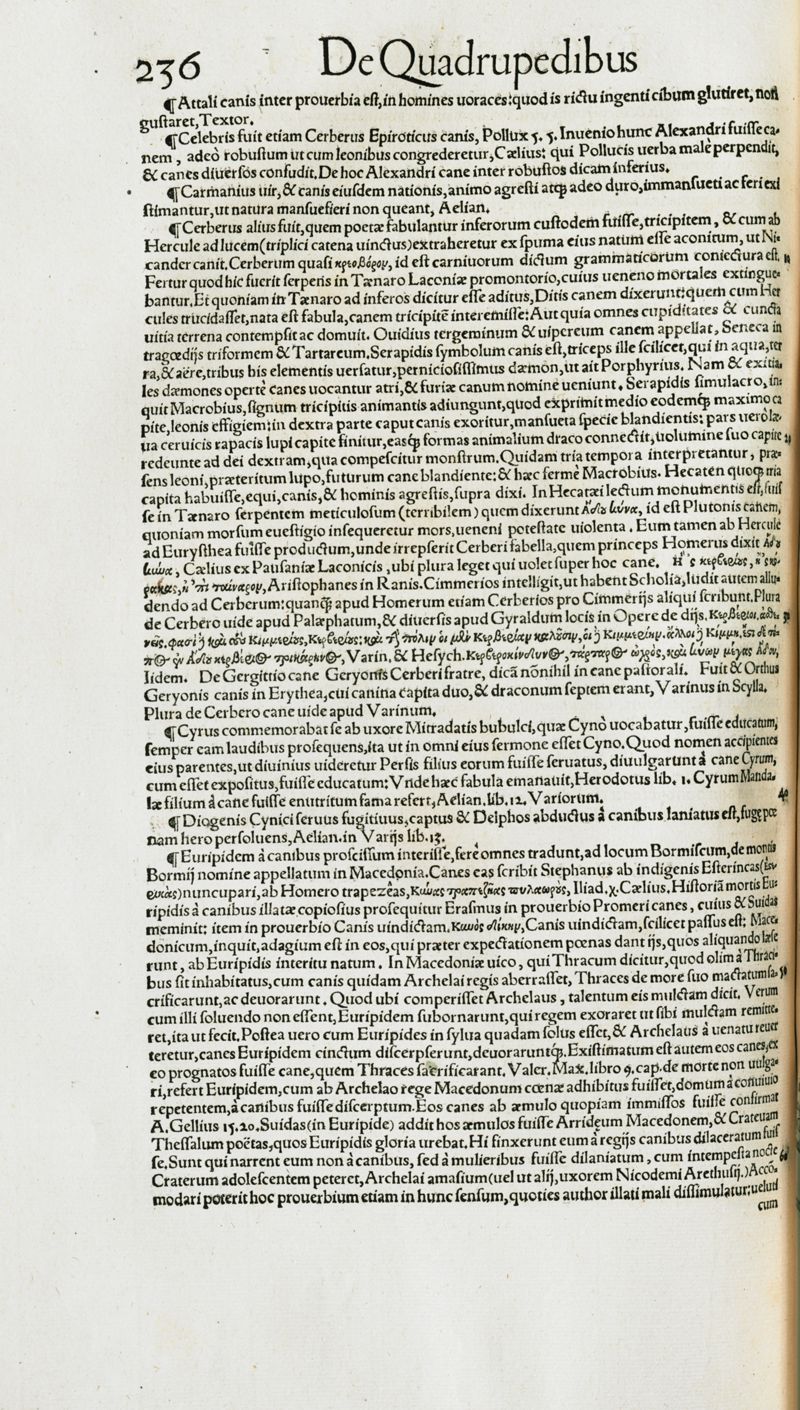 236 De Quadrupedibus
¶ Attali canis inter prouerbia est, in homines uoraces: quod is rictu ingenti cibum glutiret, non
gustaret, Textor.
¶ Celebris fuit etiam Cerberus Epiroticus canis, Pollux 5. 5. Inuenio hunc Alexandri fuisse ca-
nem, adeò robustum ut cum leonibus congrederetur, Cælius: qui Pollucis uerba malè perpendit,
& canes diuersos confudit. De hoc Alexandri cane inter robustos dicam inferius.
¶ Carmanius uir, & canis eiusdem nationis, animo agresti atq; adeo duro, immansueti ac feri exi
stimantur, ut natura mansuefieri non queant, Aelian.
¶ Cerberus alius fuit, quem poetæ fabulantur inferorum custodem fuisse, tricipitem, & cum ab
Hercule ad lucem (triplici catena uinctus) extraheretur ex spuma eius natum esse aconitum, ut Ni-
cander canit. Cerberum quasi κρεοβόρον, id est carniuorum dictum grammaticorum coniectura est.
Fertur quod hic fuerit serpens in Tænaro Laconiæ promontorio, cuius ueneno mortales extingue-
bantur. Et quoniam in Tænaro ad inferos dicitur esse aditus, Ditis canem dixerunt: quem cum Her
cules trucidasset, nata est fabula, canem tricipitē interemisse: Aut quia omnes cupiditates & cuncta
uitia terrena contempsit ac domuit. Ouidius tergeminum & uipereum canem appellat, Seneca in
tragœdijs triformem & Tartareum. Serapidis symbolum canis est, triceps ille scilicet, qui in aqua, ter
ra, & aëre, tribus his elementis uersatur, perniciosissimus dæmon, ut ait Porphyrius. Nam & exitia-
les dæmones opertè canes uocantur atri, & furiæ canum nomine ueniunt. Serapidis simulacro, in-
quit Macrobius, signum tricipitis animantis adiungunt, quod exprimit medio eodemq; maximo ca
pite, leonis effigiem: in dextra parte caput canis exoritur, mansueta specie blandientis: pars uero læ-
ua ceruicis rapacis lupi capite finitur, easq; formas animalium draco connectit, uolumine suo capite
redeunte ad dei dextram, qua compescitur monstrum. Quidam tria tempora interpretantur, præ-
sens leoni, præteritum lupo, futurum cane blandiente: & hæc fermè Macrobius. Hecaten quoq; tria
capita habuisse, equi, canis, & hominis agrestis, supra dixi. In Hecatæi lectum monumentis est, fuis
se in Tænaro serpentem meticulosum (terribilem) quem dixerunt Ἀΐδα κύνα, id est Plutonis canem,
quoniam morsum euestigio insequeretur mors, ueneni potestate uiolenta. Eum tamen ab Hercule
ad Eurysthea fuisse productum, unde irrepserit Cerberi fabella, quem princeps Homerus dixit Ἀΐδα
κύνα, Cælius ex Pausaniæ Laconicis, ubi plura leget qui uolet super hoc cane.
Aristophanes in Ranis. Cimmerios intelligit, ut habent Scholia, ludit autem allu-
dendo ad Cerberum: quanq; apud Homerum etiam Cerberios pro Cimmerijs aliqui scribunt. Plura
de Cerbero uide apud Palæphatum, & diuersis apud Gyraldum locis in Opere de dijs.
Varin. & Hesych.
Iidem. De Gergittio cane Geryonis Cerberi fratre, dicā nōnihil in cane pastorali. Fuit & Orthus
Geryonis canis in Erythea, cui canina capita duo, & draconum septem erant, Varinus in Scylla.
Plura de Cerbero cane uide apud Varinum.
¶ Cyrus commemorabat se ab uxore Mitradatis bubulci, quæ Cyno uocabatur, fuisse educatum,
semper eam laudibus prosequens, ita ut in omni eius sermone esset Cyno. Quod nomen accipientes
eius parentes, ut diuinius uideretur Persis filius eorum fuisse seruatus, diuulgarunt à cane Cyrum,
cum esset expositus, fuisse educatum: Vnde hæc fabula emanauit, Herodotus lib. 1. Cyrum Manda-
læ filium à cane fuisse enutritum fama refert, Aelian. lib. 12. Variorum.
40
¶ Diogenis Cynici seruus fugitiuus, captus & Delphos abductus à canibus laniatus est, fugę pœ
nam hero persoluens, Aelian. in Varijs lib. 13.
¶ Euripidem à canibus proscissum interisse, ferè omnes tradunt, ad locum Bormiscum, de montis
Bormij nomine appellatum in Macedonia. Canes eas scribit Stephanus ab indigenis Esterincas
nuncupari, ab Homero trapezêas, Κύνας τραπεζῆας πυλαωρούς, Iliad. χ. Cælius. Historiā mortis Eu-
ripidis à canibus illatæ copiosius prosequitur Erasmus in prouerbio Promeri canes, cuius & Suidas
meminit: item in prouerbio Canis uindictam, Κυνὸς δίκην, Canis uindictam, scilicet passus est: Mace-
donicum, inquit, adagium est in eos, qui præter expectationem pœnas dant ijs, quos aliquando læse
runt, ab Euripidis interitu natum. In Macedoniæ uico, qui Thracum dicitur, quod olim à Thraci-
bus sit inhabitatus, cum canis quidam Archelai regis aberrasset, Thraces de more suo mactatum sa-
crificarunt, ac deuorarunt. Quod ubi comperisset Archelaus, talentum eis mulctam dicit. Verum
cum illi soluendo non essent, Euripidem subornarunt, qui regem exoraret ut sibi mulctam remitte-
ret, ita ut fecit. Postea uero cum Euripides in sylua quadam solus esset, & Archelaus à uenatu reuer
teretur, canes Euripidem cinctum discerpserunt, deuoraruntq;. Existimatum est autem eos canes, ex
eo prognatos fuisse cane, quem Thraces sacrificarant. Valer. Max. libro 9. cap. de morte non uulga-
ri, refert Euripidem, cum ab Archelao rege Macedonum cœnæ adhibitus fuisset, domum à conuiuio
repetentem, à canibus fuisse discerptum. Eos canes ab æmulo quopiam immissos fuisse confirmat
A. Gellius 15. 20. Suidas (in Euripide) addit hos æmulos fuisse Arrideum Macedonem, & Crateuam
Thessalum poëtas, quos Euripidis gloria urebat. Hi finxerunt eum à regijs canibus dilaceratum fuis
se. Sunt qui narrent eum non à canibus, sed à mulieribus fuisse dilaniatum, cum intempesta nocte
Craterum adolescentem peteret, Archelai amasium (uel ut alij, uxorem Nicodemi Arethusij.) Acco-
modari poterit hoc prouerbium etiam in hunc sensum, quoties author illati mali dissimulatur: ueluti
cum